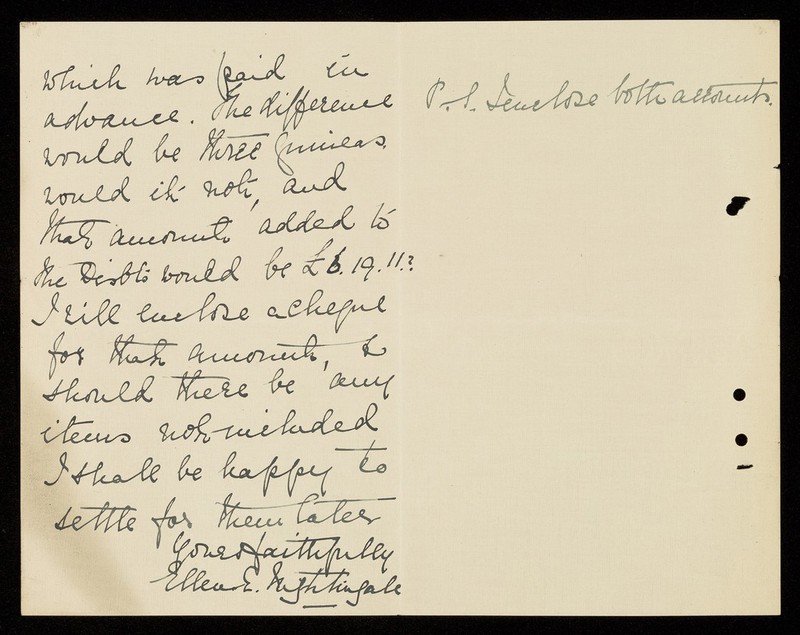 which was paid in
advance. The difference
would be three guineas.
would it not, and
that amount added to
the Disbts would be £6.19.11.?
I will enclose a cheque
for that amount, &
should there be any
items not included
I shall be happy to
settle for them later
Yours faithfully
Ellen E. Nightingale
P.S. I enclose both accounts.